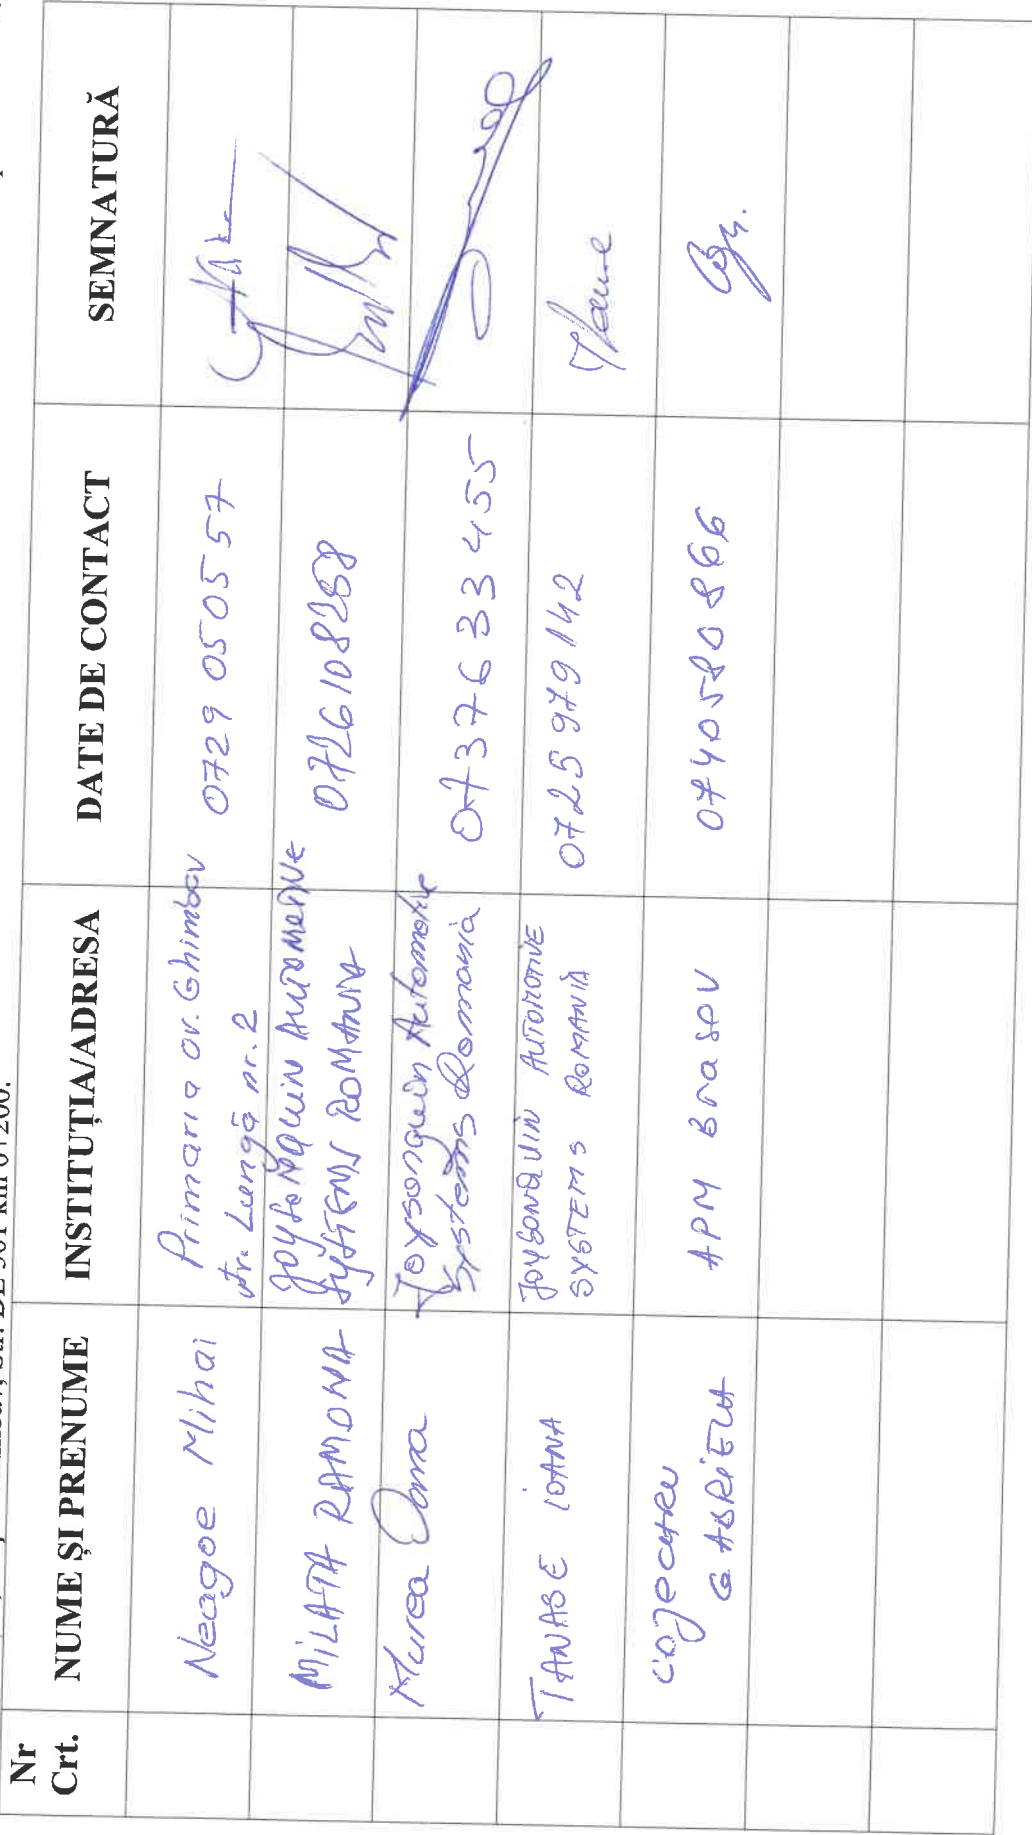 Nr Crt.
NUME ȘI PRENUME
INSTITUȚIA/ADRESA
DATE DE CONTACT
SEMNATURĂ
Neagoe Mihai
Primaria or. Ghimbav
str. Lungă nr. 2
0729 050557
MILATA RAMONA
JOYSONQUIN AUTOMOTIVE
SYSTEMS ROMANIA
0726108268
Murea Oana
Joysonquin Automotive
Systems Romania
0737633455
TANASE IOANA
JOYSONQUIN AUTOMOTIVE
SYSTEMS ROMANIA
0725979142
COJOCARU
GABRIELA
APM BRASOV
0740580866